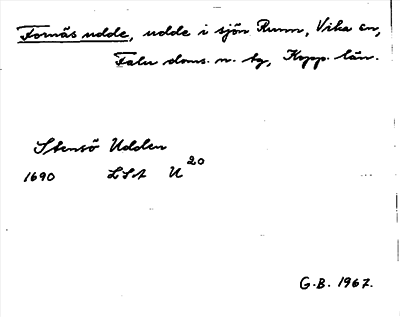 Fornäs udde, udde i sjön Runn, Vika sn,
Falu doms. n. tg, Kopp. län.
Stensö Udden
1690 LSA U20
G.B. 1967.